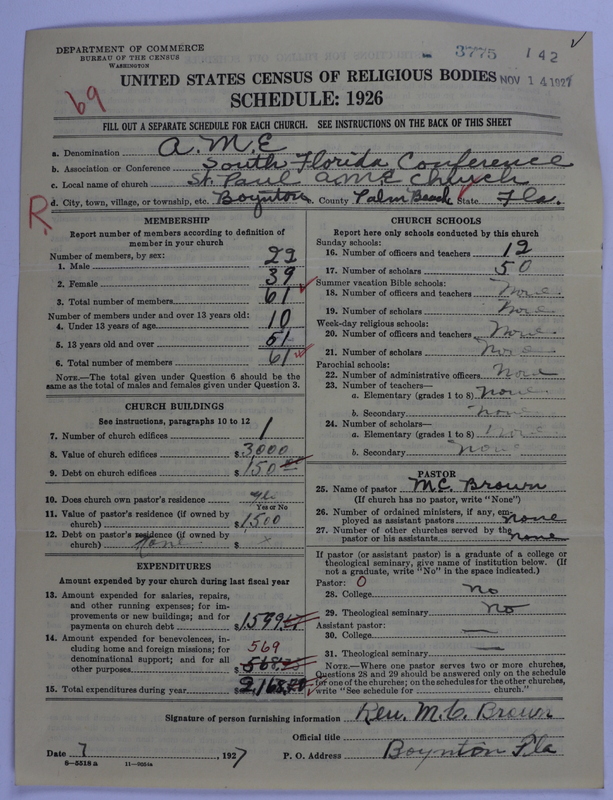 DEPARTMENT OF COMMERCE
BUREAU OF THE CENSUS
WASHINGTON
3775 142
NOV 14 1927
69
UNITED STATES CENSUS OF RELIGIOUS BODIES
SCHEDULE: 1926
FILL OUT A SEPARATE SCHEDULE FOR EACH CHURCH. SEE INSTRUCTIONS ON THE BACK OF THIS SHEET
a. Denomination A. M. E
b. Association or Conference South Florida Conference
c. Local name of church St. Paul AME Church
R
d. City, town, village, or township, etc. Boynton e. County Palm Beach State Fla.
MEMBERSHIP
Report number of members according to definition of
member in your church
Number of members, by sex:
1. Male 22
2. Female 39
3. Total number of members 61
Number of members under and over 13 years old:
4. Under 13 years of age 10
5. 13 years old and over 51
6. Total number of members 61
NOTE.—The total given under Question 6 should be
same as the total of males and females given under Question 3.
CHURCH BUILDINGS
See instructions, paragraphs 10 to 12
7. Number of church edifices 1
8. Value of church edifices $3,000
9. Debt on church edifices $150
10. Does church own pastor's residence yes
Yes or No
11. Value of pastor's residence (if owned by
church) $1500
12. Debt on pastor's residence (if owned by
church) None $ x
EXPENDITURES
Amount expended by your church during last fiscal year
13. Amount expended for salaries, repairs,
and other running expenses; for im-
provements or new buildings; and for
payments on church debt $1599
14. Amount expended for benevolences, in-
cluding home and foreign missions; for
denominational support; and for all
other purposes
569
$568
15. Total expenditures during year $2,168
CHURCH SCHOOLS
Report here only schools conducted by this church
Sunday schools:
16. Number of officers and teachers 12
17. Number of scholars 50
Summer vacation Bible schools:
18. Number of officers and teachers None
19. Number of scholars None
Week-day religious schools:
20. Number of officers and teachers None
21. Number of scholars None
Parochial schools:
22. Number of administrative officers None
23. Number of teachers—
a. Elementary (grades 1 to 8) None
b. Secondary None
24. Number of scholars—
a. Elementary (grades 1 to 8) None
b. Secondary None
PASTOR
25. Name of pastor M.C. Brown
(If church has no pastor, write "None")
26. Number of ordained ministers, if any, em-
ployed as assistant pastors none
27. Number of other churches served by the
pastor or his assistants none
If pastor (or assistant pastor) is a graduate of a college or
theological seminary, give name of institution below. (If
not a graduate, write "No" in the space indicated.)
Pastor: 0
28. College No
29. Theological seminary No
Assistant pastor:
30. College —
31. Theological seminary —
NOTE.—Where one pastor serves two or more churches,
Questions 28 and 29 should be answered only on the schedule
for one of the churches; on the schedules for the other churches,
write "See schedule for church."
Signature of person furnishing information Rev. M. C. Brown
Official title
Date 7, 1927 P. O. Address Boynton Fla
8—5518 a